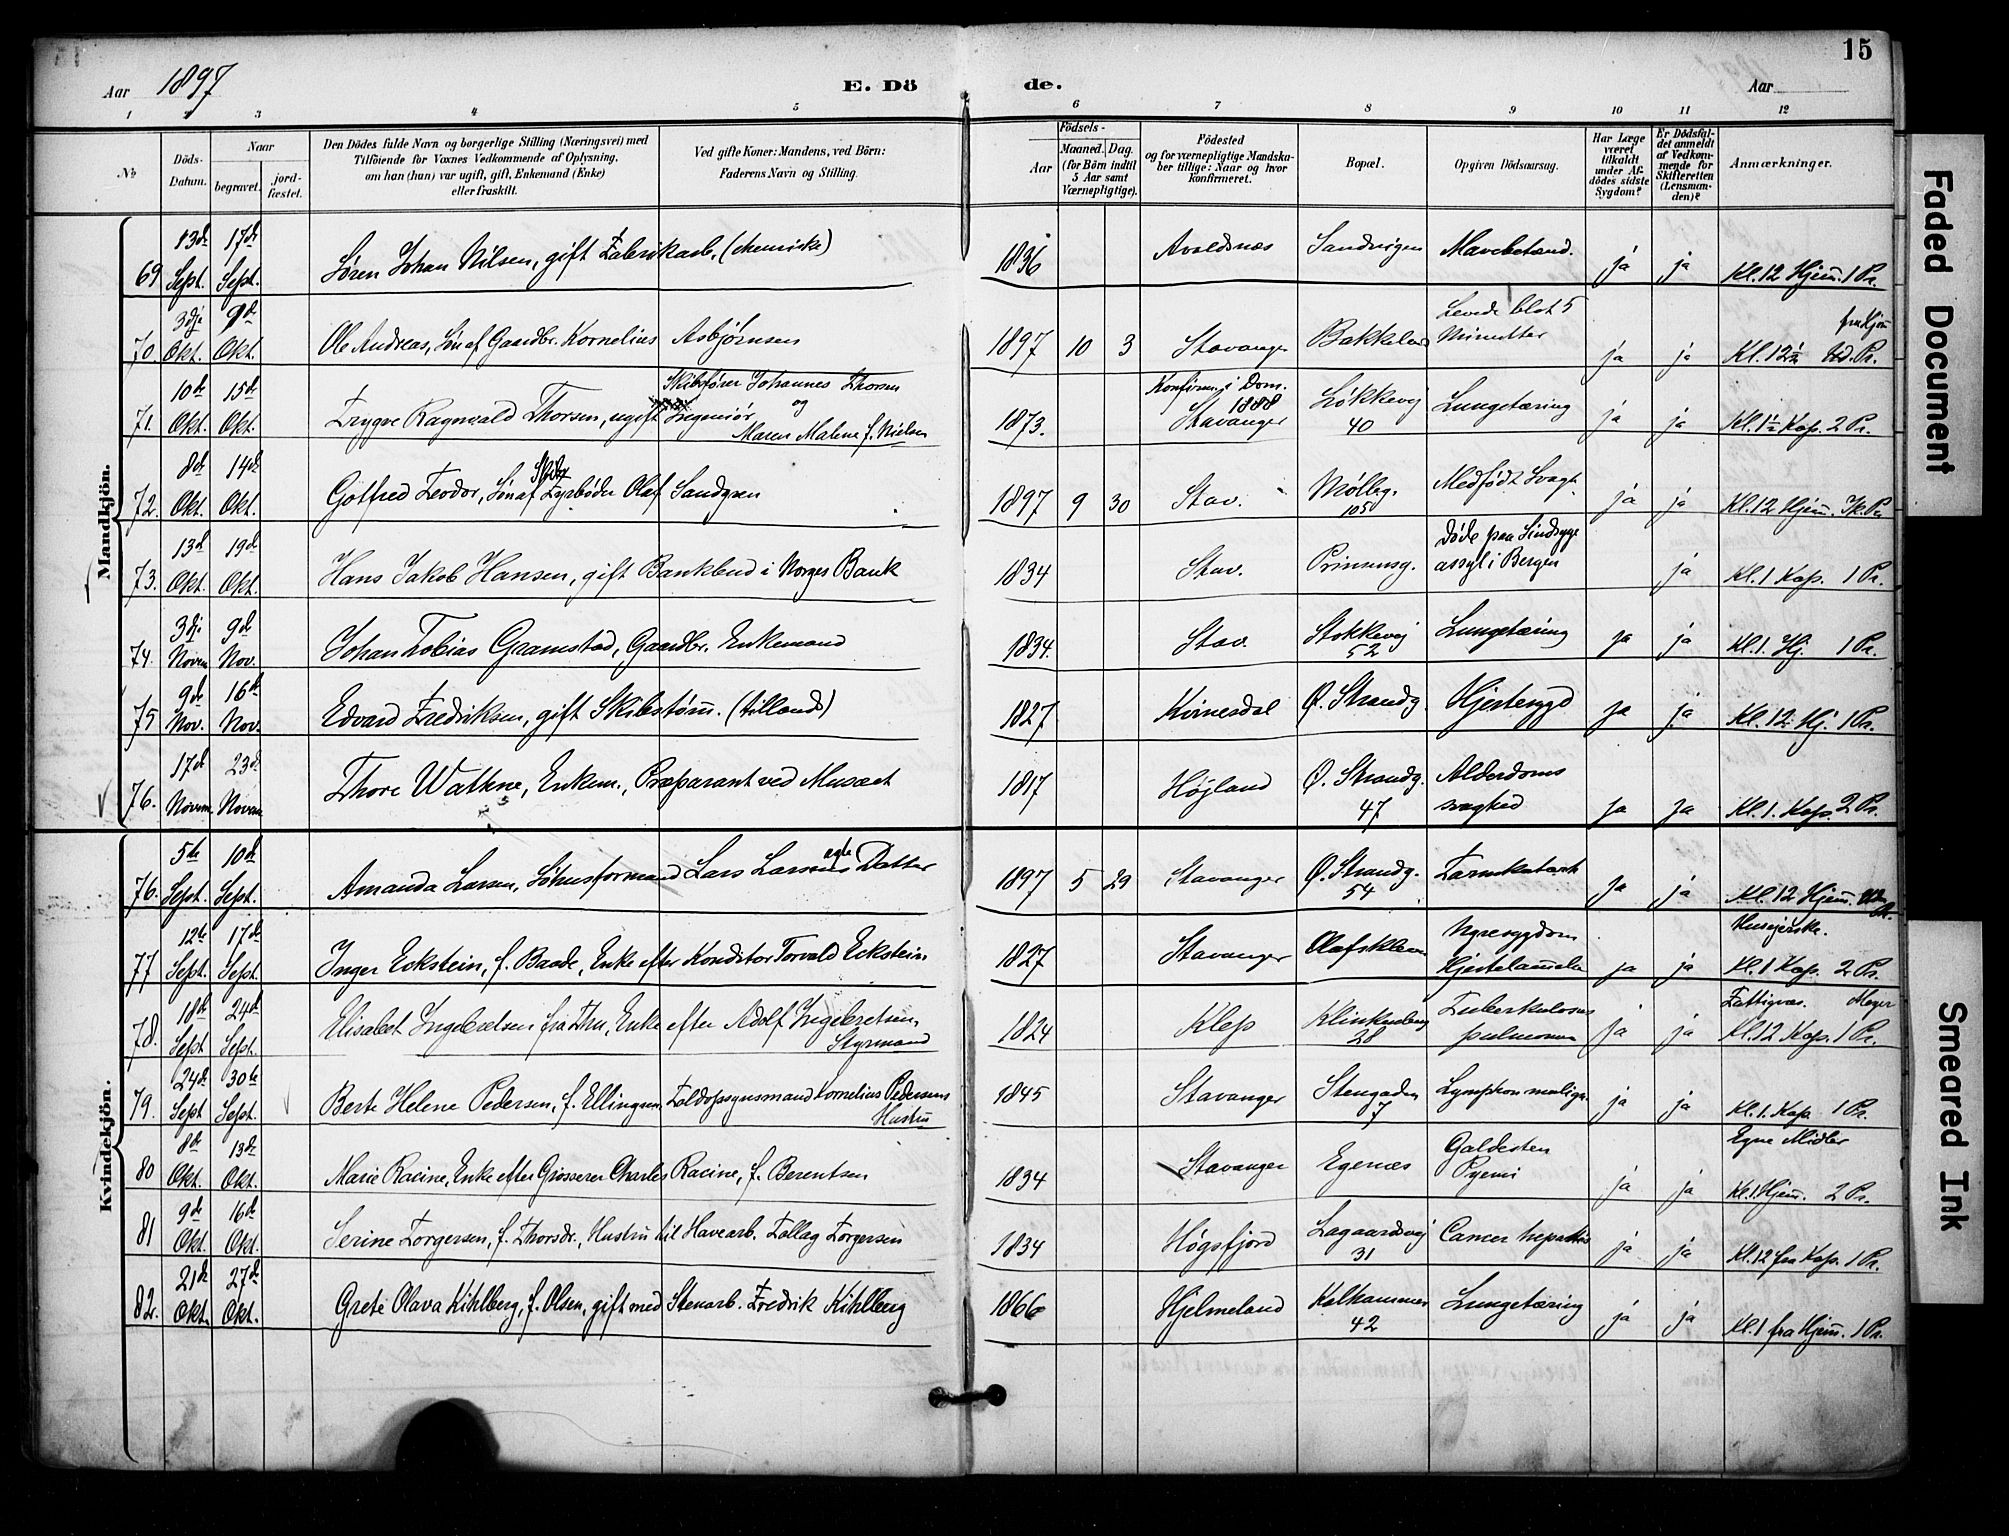 15
Aar 1897 E. Dö de. Aar
1 2 3 4 5 6 7 8 9 10 11 12
No Döds-Datum. Naar begravet. jord-fæstet. Den Dödes fulde Navn og borgerlige Stilling (Næringsvei) med Tilföiende for Voxnes Vedkommende af Oplysning, om han (hun) var ugift, gift, Enkemand (Enke) eller fraskilt. Ved gifte Koner: Mandens, ved Börn: Faderens Navn og Stilling. Födsels- Aar Maaned. Dag. (for Börn indtil 5 Aar samt Værnepligtige). Födested og for værnepligtige Mandskaber tillige: Naar og hvor konfirmeret. Bopæl. Opgiven Dödsaarsag. Har Læge været tilkaldt under Afdödes sidste Sygdom? Er Dödsfaldet anmeldt af Vedkommende for Skifteretten (Lensmanden)? Anmærkninger.
Mandkjön.
69 13de Sept. 17de Sept. Søren Johan Nilsen, gift Fabrikarb. (chemiske) 1836 Avaldsnes Sandvigen Mavebetænd. ja ja Kl. 12 Hjem. 1 Pr.
70. 3dje Okt. 9de Okt. Ole Andreas, Søn af Gaardbr. Kornelius Asbjørnsen 1897 10 3 Stavanger Bakkeland Levede blot 5 Minutter ja ja Kl. 12½ fra Hjem Ud. Pr.
71. 10de Okt. 15de Okt. Trygve Ragnvald Thorsen, ugift Ingeniør Skibsfører Johannes Thorsen og Maren Malene f. Nielsen 1873. Konfirm. i Dom. 1888 Stavanger Løkkevej 40 Lungetæring ja ja Kl. 1½ Kap. 2 Pr.
72. 8de Okt. 14de Okt. Gotfred Teodor, Søn af Skibs Fyrbøder Olaf Sandgren 1897 9 30 Stav. Mølleg. 105 Medfødt Svagh. ja ja Kl. 12 Hjem. Ik. Pr.
73. 13de Okt. 19de Okt. Hans Jakob Hansen, gift Bankbud i Norges Bank 1834 Stav. Prinsensg. Døde paa Sindsyge assyl i Bergen ja Kl. 1 Kap. 1 Pr.
74. 3dje Novem 9de Nov. Johan Tobias Gramstad, Gaardbr. Enkemand 1834. Stav. Stokkevej 52 Lungetæring ja ja Kl. 1 Hj. 1 Pr.
75 9de Nov. 16de Nov. Edvard Fredriksen, gift Skibstøm. (tillands) 1827 Kvinesdal Ø. Strandg. Hjertesygd ja ja Kl. 12 Hj. 1 Pr.
76. 17de Novem. 23de Novem Thore Watkne, Enkem., Præparant ved Musæet 1817 Højland Ø. Strandg. 47 Alderdoms svaghed ja ja Kl. 1. Kap. 2 Pr.
Kvindekjön.
76. 5te Sept. 10de Sept. Amanda Larsen, Løhusformand Lars Larsens egte Datter 1897 5 29 Stavanger Ø. Strandg. 54 Tarmkatarh ja ja Kl. 12 Hjem. Uden Pr.
77 12te Sept. 17de Sept. Inger Eckstein, f. Baade, Enke efter Konditor Torvald Eckstein. 1827 Stavanger Olafskleven Nyresygdom Hjertelammelse ja ja Huseierske. Kl. 1 Kap. 2 Pr.
78. 18de Sept 24de Sept. Elisabet Ingebretsen fra Thu, Enke efter Adolf Ingebretsen, Styrmand 1824 Klep Klinkenberg 28 Tuberkulosus pulmonum ja ja Fattigvæs. Meyer Kl. 12 Kap. 1 Pr.
79. 24de Sept 30te Sept. Berte Helene Pedersen, f. Ellingsen Toldopsynsmand Cornelius Pedersens Hustru 1845 Stavanger Stengaden 7 Lymfkom malign. ja ja Kl. 1. Kap. 1 Pr.
80 8de Okt. 13de Okt. Marie Racine, Enke efter Grosserer Charles Racine, f. Berentsen 1834 Stavanger Egenæs Galdesten Pyemi ja ja Egne Midler Kl. 1. Hjem. 2 Pr.
81 9de Okt. 16de Okt. Serine Torgersen, f. Thorsdr., Hustru til Havearb. Tollag Torgersen 1834 Høgsfjord Lagaardsvej 31 Cancer hepatis ja ja Kl. 12 fra Kap. 1 Pr.
82. 21de Okt. 27de Okt. Grete Olava Kihlberg, f. Olsen, gift med Stenarb. Fredrik Kihlberg 1866 Hjelmeland Kalhammer 42 Lungetæring ja ja Kl. 1 fra Hjem. 1 Pr.
Faded Document
Smeared Ink